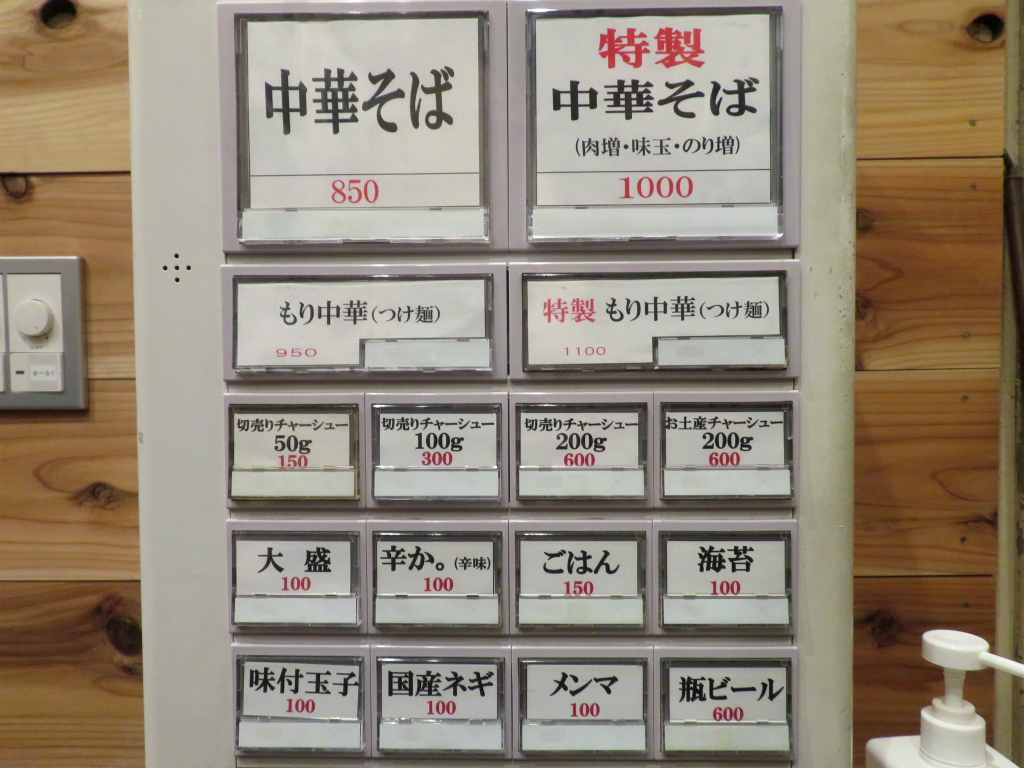 中華そば
850
特製
中華そば
(肉増・味玉・のり増)
1000
もり中華(つけ麺)
950
特製 もり中華(つけ麺)
1100
切売りチャーシュー
50g
150
切売りチャーシュー
100g
300
切売りチャーシュー
200g
600
お土産チャーシュー
200g
600
大 盛
100
辛か。(辛味)
100
ごはん
150
海苔
100
味付玉子
100
国産ネギ
100
メンマ
100
瓶ビール
600